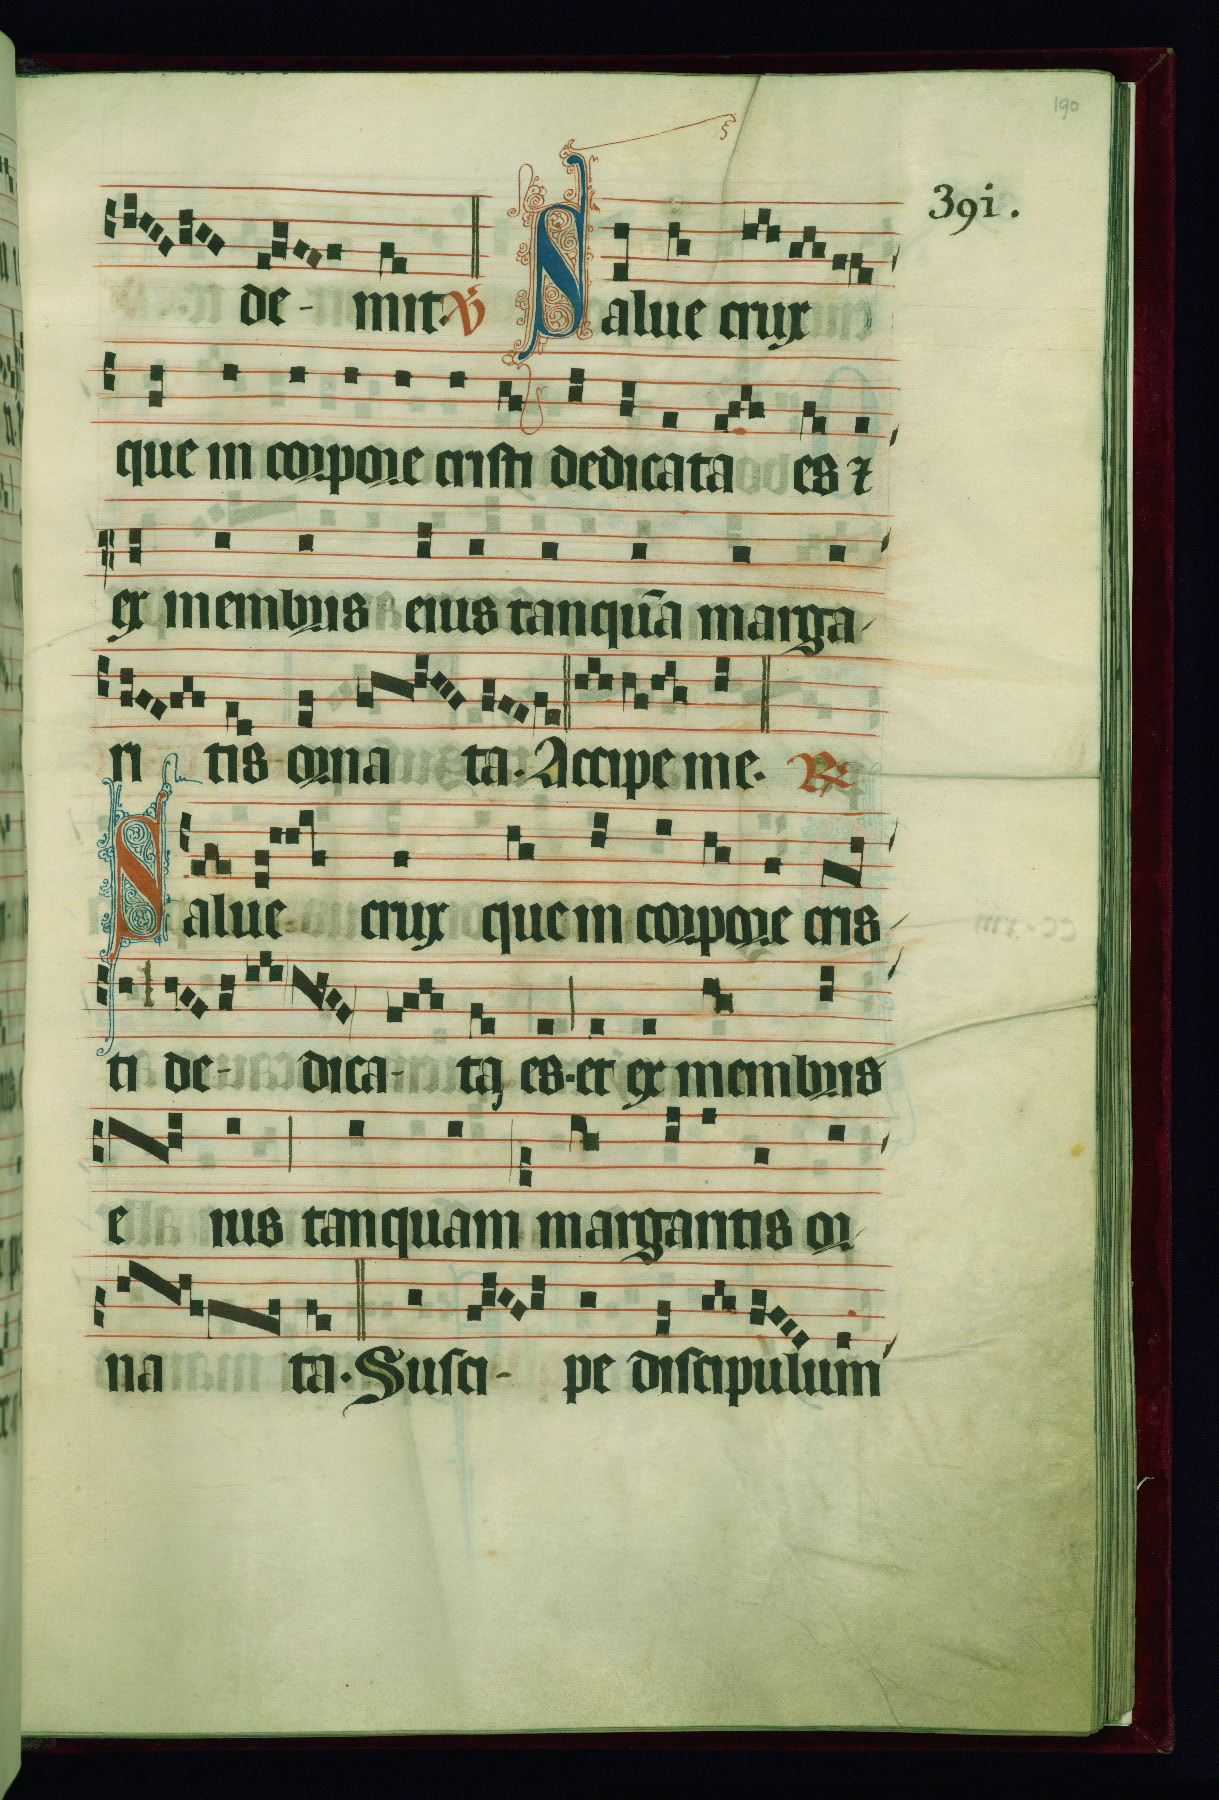 190
39i.
de- mit. ℣ Salue crux
que in corpore cristi dedicata es ⁊
ex membris eius tanquā marga-
ri tis orna ta. Accipe me. ℞
Salue crux que in corpore cris
ti de- dica- ta es. et ex membris
e ius tanquam margaritis or-
na ta. Susci- pe discipulum